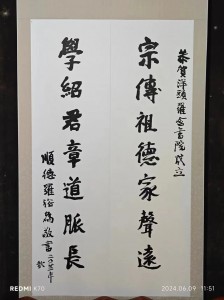 恭賀洋頭羅念書院成立
宗傳祖德家聲遠
學紹君章道脈長
順德羅裕為敬書二〇二三年秋
REDMI K70
2024.06.09 11:51